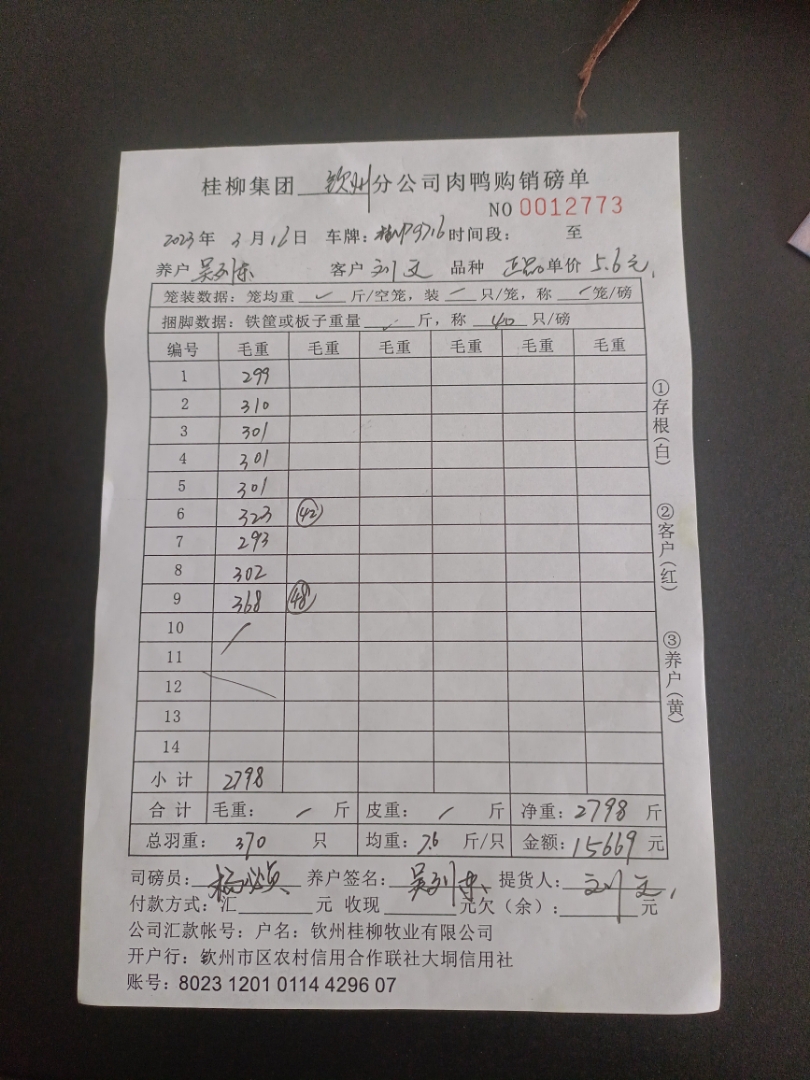 桂柳集团 钦州 分公司肉鸭购销磅单
NO 0012773
2023年 3月16日 车牌: 时间段: 至
养户 吴列东 客户 刘文 品种 正品 单价 5.6元
笼装数据: 笼均重 ✓ 斤/空笼, 装 一 只/笼, 称 一 笼/磅
捆脚数据: 铁筐或板子重量 ✓ 斤, 称 40 只/磅
编号 毛重 毛重 毛重 毛重 毛重 毛重
1 299
2 310
3 301
4 301
5 301
6 323 42
7 293
8 302
9 368 48
10
11
12
13
14
小计 2798
合计 毛重: 斤 皮重: 斤 净重: 2798 斤
总羽重: 370 只 均重: 7.6 斤/只 金额: 15669 元
①存根(白)
②客户(红)
③养户(黄)
司磅员: 养户签名: 吴列东 提货人: 刘文
付款方式: 汇 元 收现 元欠(余): 元
公司汇款帐号: 户名: 钦州桂柳牧业有限公司
开户行: 钦州市区农村信用合作联社大垌信用社
账号: 8023 1201 0114 4296 07